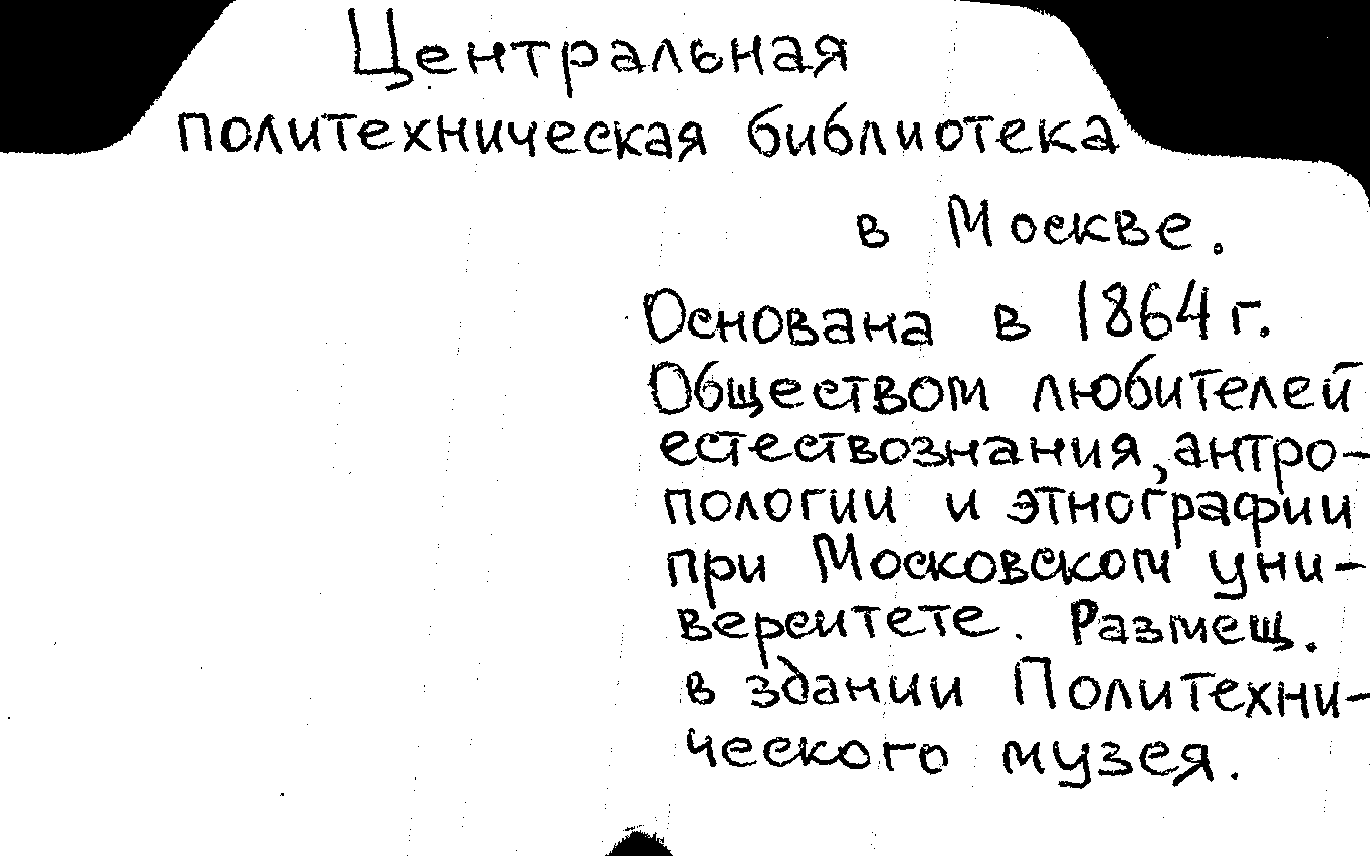 Центральная
политехническая библиотека
в Москве.
Основана в 1864 г.
Обществом любителей
естествознания, антро-
пологии и этнографии
при Московском уни-
верситете. Размещ.
в здании Политехни-
ческого музея.